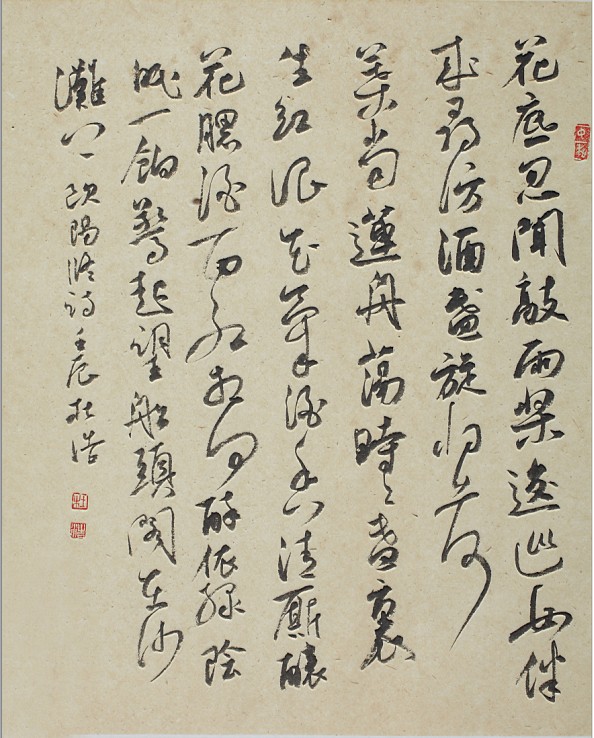 花底忽聞敲兩槳逡巡女伴
来尋訪酒盞旋将荷
葉當蓮舟蕩時〻盞裏
生紅浪花氣酒香清厮釀
花腮酒面紅相向醉依綠陰
眠一餉驚起望船頭閣在沙
灘上 欧陽脩詩壬辰杜浩
杜
浩